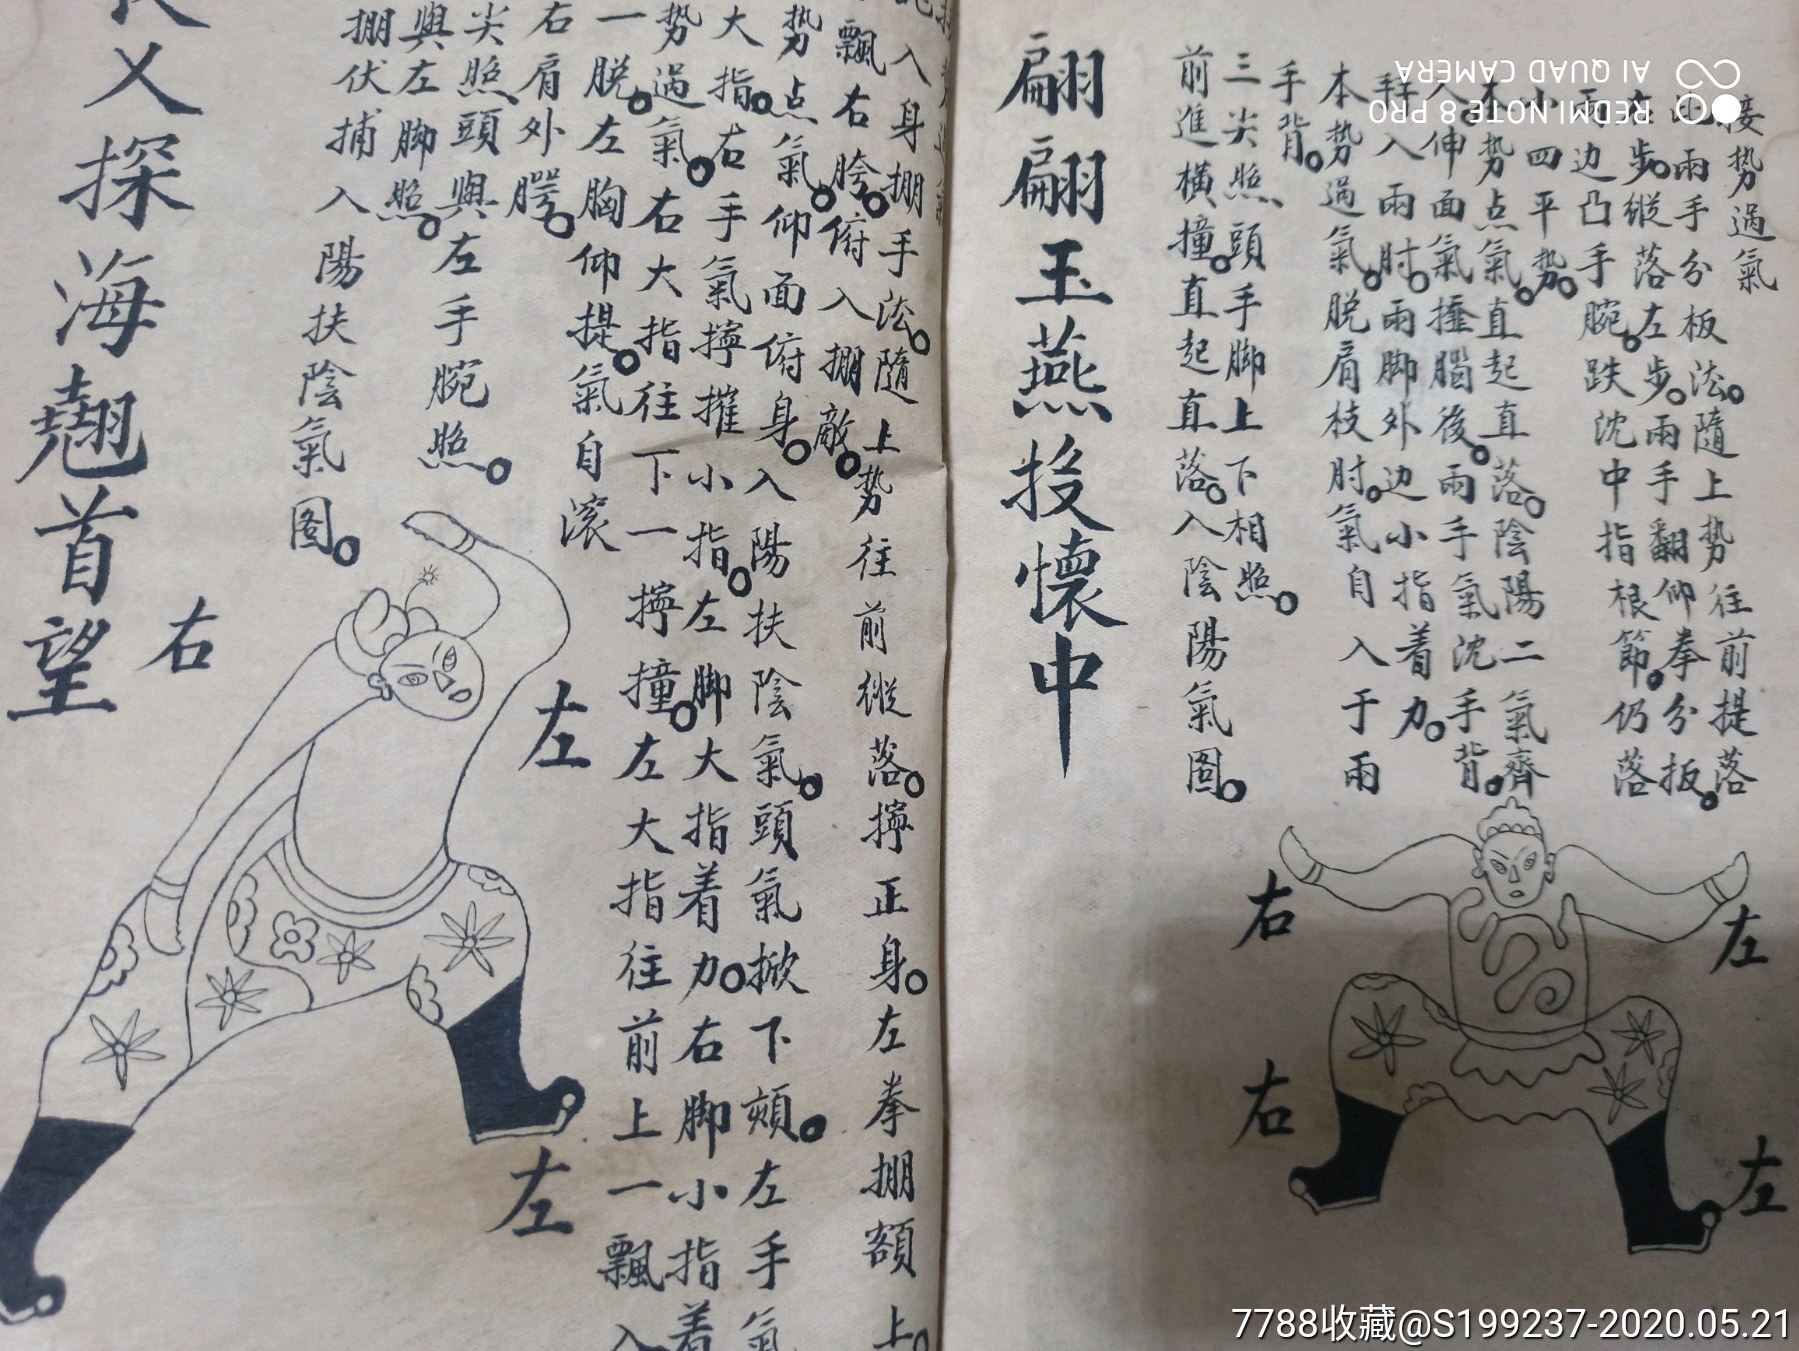 接势過氣
此兩手分板法。隨上势往前提落
右步。縱落左步。兩手翻仰拳分扳。
兩边凸手腕。跌沈中指根節。仍落
小四平势。
本势点氣。直起直落。陰陽二氣齊
入。伸面氣撞腦後。兩手氣沈手背。
拜入兩肘。兩脚外边小指着力。
本势過氣。脱肩枝肘。氣自入于兩
手背。
三尖照、頭手脚上下相照。
前進橫撞。直起直落。入陰陽氣圖。
翩翩玉燕投懷中
右
左
右
左
入身掤手法。隨上势往前縱落。擰正身。左拳掤額上。
飄右胯。俯入掤敵。
势点氣。仰面俯身。入陽扶陰氣。頭氣掀下頰。左手氣
大指。右手氣擰摧小指。左脚大指着力。右脚小指着
势過氣。右大指往下一擰撞。左大指往前上一飄入
一脱。左胸仰提。氣自滚
右肩外腭。
尖照、頭與左手腕照。
與左脚照。
掤伏捕入陽扶陰氣圖。
乂探海翹首望
右
左
左
REDMI NOTE 8 PRO
AI QUAD CAMERA
7788收藏@S199237-2020.05.21